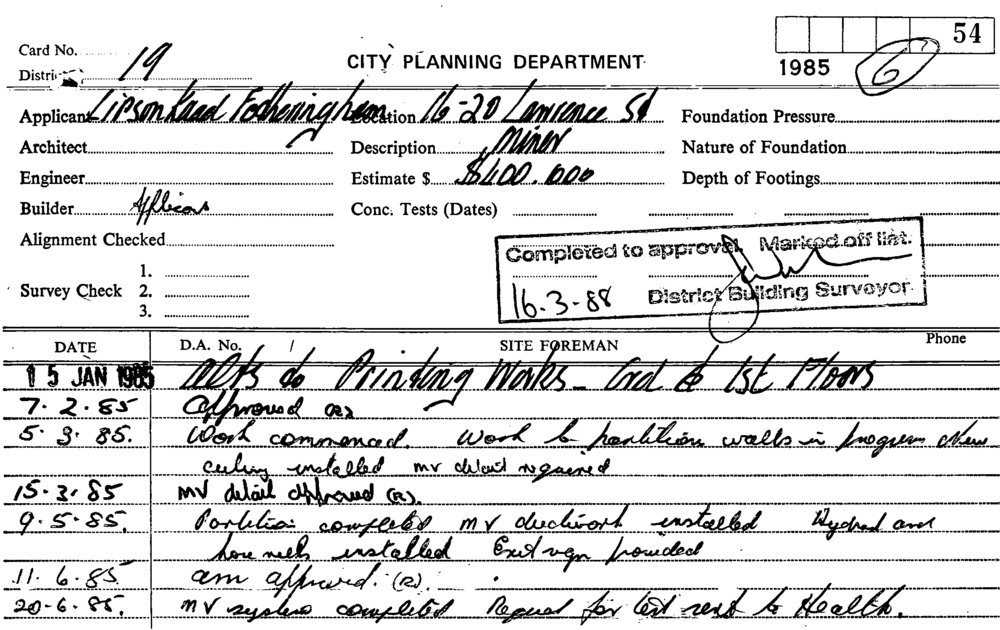 54
Card No.
19
CITY PLANNING DEPARTMENT
1985
6
District
Applicant Lipson Kaad Fotheringham Location 16-20 Lawrence St Foundation Pressure
Architect Description Minor Nature of Foundation
Engineer Estimate $ $400.000 Depth of Footings
Builder Applicant Conc. Tests (Dates)
Alignment Checked
Completed to approval. Marked off list.
1.
Survey Check 2.
16.3.88 District Building Surveyor
3.
DATE D.A. No. / SITE FOREMAN Phone
15 JAN 1985 Alts to Printing Works - Grd & 1st Floors
7.2.85 Approved (R)
5.3.85. Work commenced. Work to partition walls in progress New
ceiling installed mv detail required
15.3.85 MV detail approved (R).
9.5.85. Partition completed MV ductwork installed Hydrant and
hose reels installed Exit sign provided
11.6.85 am approved. (R).
20-6.85. MV system completed Request for test sent to Health.